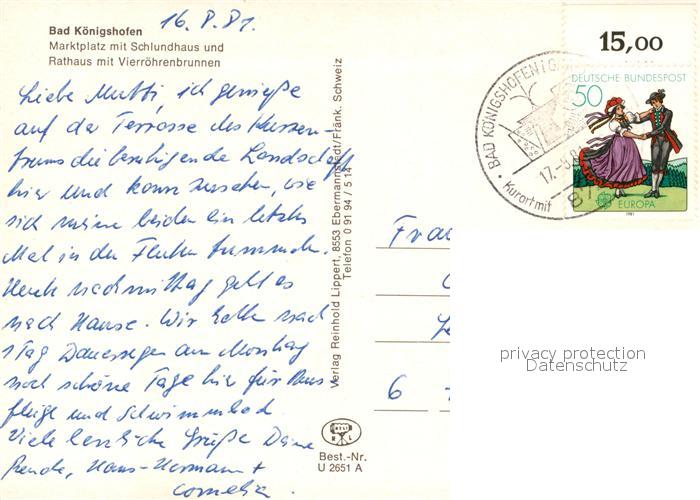 16.8.81.
Bad Königshofen
Marktplatz mit Schlundhaus und
Rathaus mit Vierröhrenbrunnen
Liebe Mutti, ich genieße
auf der Terrasse des Kurzen-
trums die beruhigende Landschaft
hier und kann zusehen, wie
sich meine beiden ein letztes
Mal in den Fluten tummeln.
Heute nachmittag geht es
nach Hause. Wir hatten nach
1 Tag Dauerregen am Montag
noch schöne Tage hier für Aus
flüge und Schwimmbad
Viele herzliche Grüße Deine
Hans-Hermann +
Cornelia.
Verlag Reinhold Lippert, 8553 Ebermannstadt/Fränk. Schweiz
Telefon 0 91 94 / 5 14
Best.-Nr.
U 2651 A
15,00
DEUTSCHE BUNDESPOST
50
EUROPA
1981
BAD KÖNIGSHOFEN I G
Kurort mit
Frau
6
privacy protection
Datenschutz